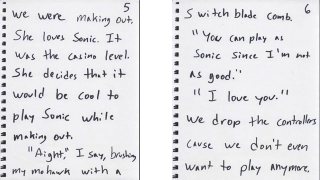 5
we were making out.
She loves Sonic. It
was the casino level.
She decides that it
would be cool to
play Sonic while
making out.
"Aight," I say, brushing
my mohawk with a
6
Switch blade comb.
"You can play as
Sonic since I'm not
as good."
"I love you."
we drop the controllers
cause we don't even
want to play anymore.